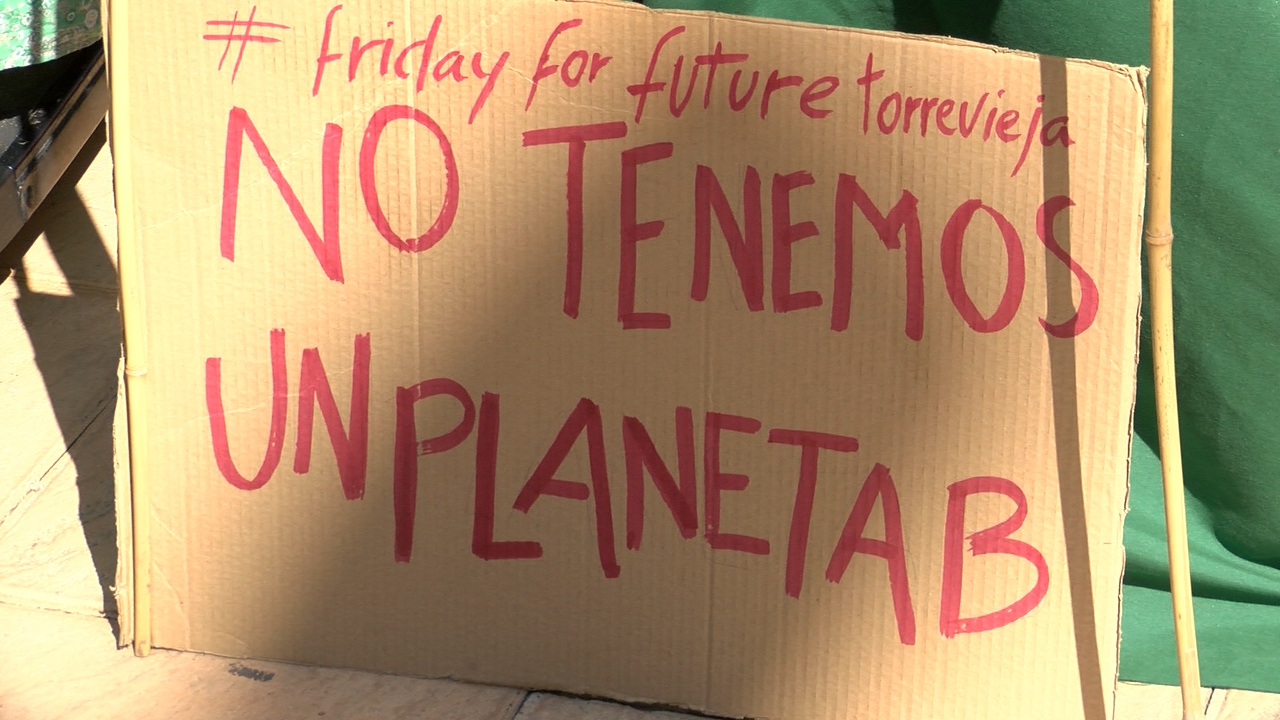 # friday for future torrevieja
NO TENEMOS
UN PLANETA B